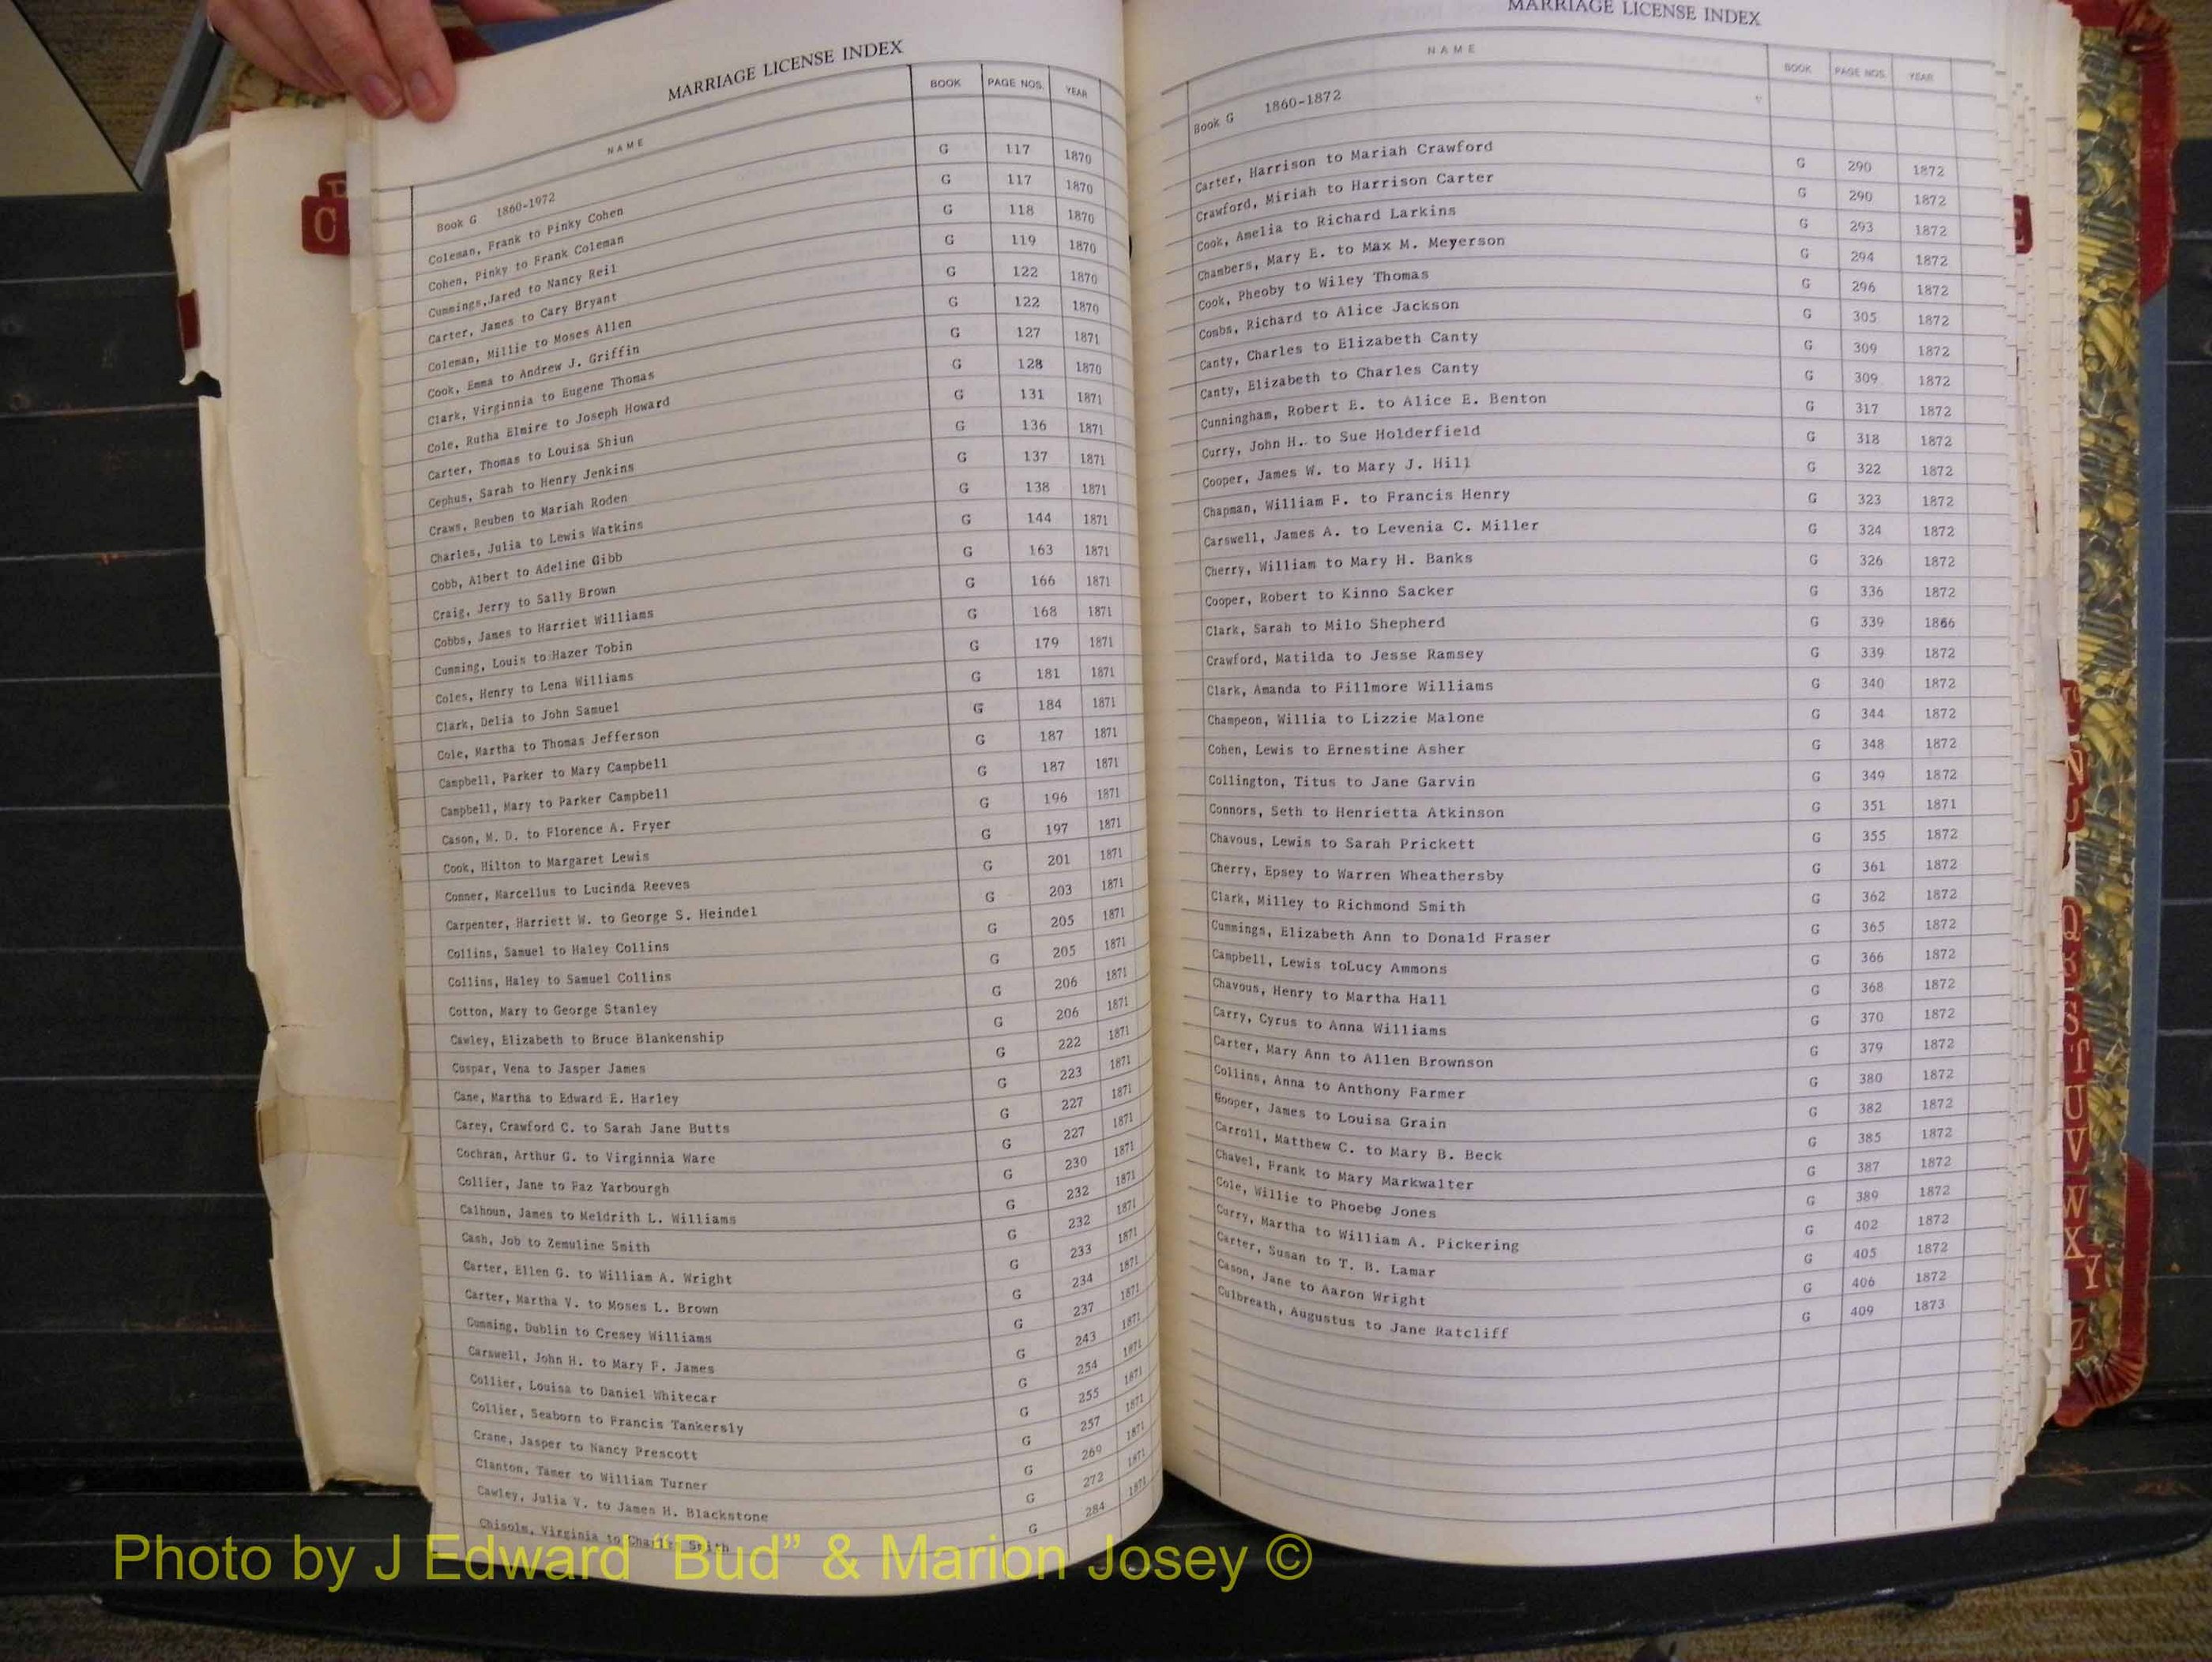 MARRIAGE LICENSE INDEX
NAME BOOK PAGE NOS. YEAR
Book G 1860-1972
Coleman, Frank to Pinky Cohen G 117 1870
Cohen, Pinky to Frank Coleman G 117 1870
Cummings,Jared to Nancy Reil G 118 1870
Carter, James to Cary Bryant G 119 1870
Coleman, Millie to Moses Allen G 122 1870
Cook, Emma to Andrew J. Griffin G 122 1870
Clark, Virginnia to Eugene Thomas G 127 1871
Cole, Rutha Elmire to Joseph Howard G 128 1870
Carter, Thomas to Louisa Shiun G 131 1871
Cephus, Sarah to Henry Jenkins G 136 1871
Craws, Reuben to Mariah Roden G 137 1871
Charles, Julia to Lewis Watkins G 138 1871
Cobb, Albert to Adeline Gibb G 144 1871
Craig, Jerry to Sally Brown G 163 1871
Cobbs, James to Harriet Williams G 166 1871
Cumming, Louis to Hazer Tobin G 168 1871
Coles, Henry to Lena Williams G 179 1871
Clark, Delia to John Samuel G 181 1871
Cole, Martha to Thomas Jefferson G 184 1871
Campbell, Parker to Mary Campbell G 187 1871
Campbell, Mary to Parker Campbell G 187 1871
Cason, M. D. to Florence A. Fryer G 196 1871
Cook, Hilton to Margaret Lewis G 197 1871
Conner, Marcellus to Lucinda Reeves G 201 1871
Carpenter, Harriett W. to George S. Heindel G 203 1871
Collins, Samuel to Haley Collins G 205 1871
Collins, Haley to Samuel Collins G 205 1871
Cotton, Mary to George Stanley G 206 1871
Cawley, Elizabeth to Bruce Blankenship G 206 1871
Cuspar, Vena to Jasper James G 222 1871
Cane, Martha to Edward E. Harley G 223 1871
Carey, Crawford C. to Sarah Jane Butts G 227 1871
Cochran, Arthur G. to Virginnia Ware G 227 1871
Collier, Jane to Faz Yarbourgh G 230 1871
Calhoun, James to Meldrith L. Williams G 232 1871
Cash, Job to Zemuline Smith G 232 1871
Carter, Ellen G. to William A. Wright G 233 1871
Carter, Martha V. to Moses L. Brown G 234 1871
Cumming, Dublin to Cresey Williams G 237 1871
Carswell, John H. to Mary F. James G 243 1871
Collier, Louisa to Daniel Whitecar G 254 1871
Collier, Seaborn to Francis Tankersly G 255 1871
Crane, Jasper to Nancy Prescott G 257 1871
Clanton, Tamer to William Turner G 269 1871
Cawley, Julia V. to James H. Blackstone G 272 1871
Chisolm, Virginia to Charles Smith G 284 1871
MARRIAGE LICENSE INDEX
NAME BOOK PAGE NOS. YEAR
Book G 1860-1872
Carter, Harrison to Mariah Crawford G 290 1872
Crawford, Miriah to Harrison Carter G 290 1872
Cook, Amelia to Richard Larkins G 293 1872
Chambers, Mary E. to Max M. Meyerson G 294 1872
Cook, Pheoby to Wiley Thomas G 296 1872
Combs, Richard to Alice Jackson G 305 1872
Canty, Charles to Elizabeth Canty G 309 1872
Canty, Elizabeth to Charles Canty G 309 1872
Cunningham, Robert E. to Alice E. Benton G 317 1872
Curry, John H. to Sue Holderfield G 318 1872
Cooper, James W. to Mary J. Hill G 322 1872
Chapman, William F. to Francis Henry G 323 1872
Carswell, James A. to Levenia C. Miller G 324 1872
Cherry, William to Mary H. Banks G 326 1872
Cooper, Robert to Kinno Sacker G 336 1872
Clark, Sarah to Milo Shepherd G 339 1866
Crawford, Matilda to Jesse Ramsey G 339 1872
Clark, Amanda to Fillmore Williams G 340 1872
Champeon, Willia to Lizzie Malone G 344 1872
Cohen, Lewis to Ernestine Asher G 348 1872
Collington, Titus to Jane Garvin G 349 1872
Connors, Seth to Henrietta Atkinson G 351 1871
Chavous, Lewis to Sarah Prickett G 355 1872
Cherry, Epsey to Warren Wheathersby G 361 1872
Clark, Milley to Richmond Smith G 362 1872
Cummings, Elizabeth Ann to Donald Fraser G 365 1872
Campbell, Lewis toLucy Ammons G 366 1872
Chavous, Henry to Martha Hall G 368 1872
Carry, Cyrus to Anna Williams G 370 1872
Carter, Mary Ann to Allen Brownson G 379 1872
Collins, Anna to Anthony Farmer G 380 1872
Cooper, James to Louisa Grain G 382 1872
Carroll, Matthew C. to Mary B. Beck G 385 1872
Chavel, Frank to Mary Markwalter G 387 1872
Cole, Willie to Phoebe Jones G 389 1872
Curry, Martha to William A. Pickering G 402 1872
Carter, Susan to T. B. Lamar G 405 1872
Cason, Jane to Aaron Wright G 406 1872
Culbreath, Augustus to Jane Ratcliff G 409 1873
C
Q
S
T
U
V
W
X
Y
Z
Photo by J Edward "Bud" & Marion Josey ©